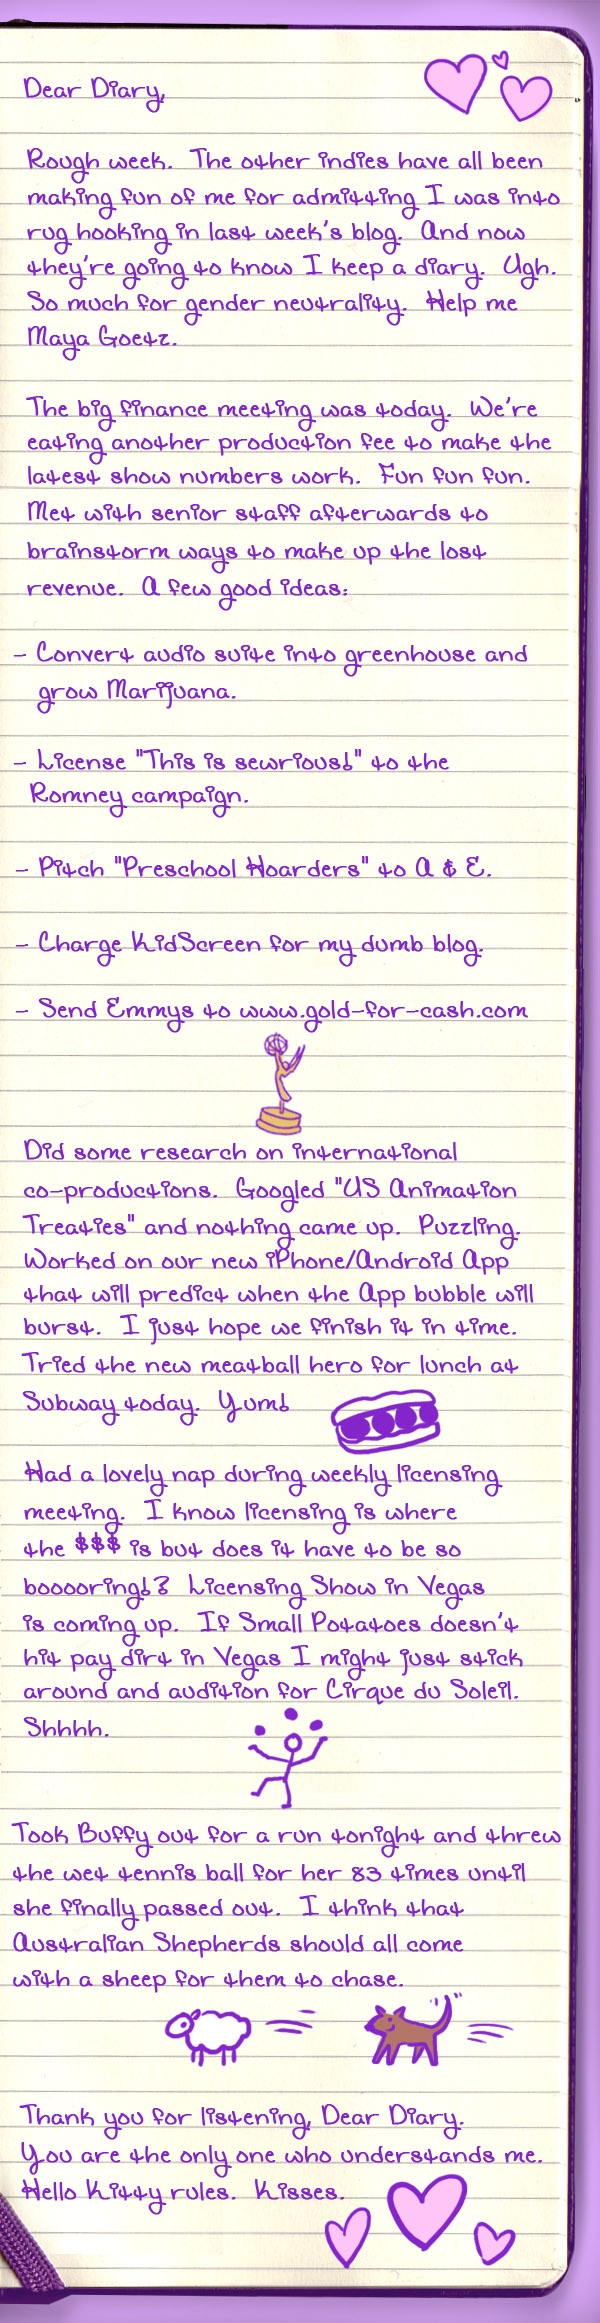 Dear Diary,
Rough week. The other indies have all been
making fun of me for admitting I was into
rug hooking in last week's blog. And now
they're going to know I keep a diary. Ugh.
So much for gender neutrality. Help me
Maya Goetz.
The big finance meeting was today. We're
eating another production fee to make the
latest show numbers work. Fun fun fun.
Met with senior staff afterwards to
brainstorm ways to make up the lost
revenue. A few good ideas:
- Convert audio suite into greenhouse and
grow Marijuana.
- License "This is sewrious!" to the
Romney campaign.
- Pitch "Preschool Hoarders" to A & E.
- Charge KidScreen for my dumb blog.
- Send Emmys to www.gold-for-cash.com
Did some research on international
co-productions. Googled "US Animation
Treaties" and nothing came up. Puzzling.
Worked on our new iPhone/Android App
that will predict when the App bubble will
burst. I just hope we finish it in time.
Tried the new meatball hero for lunch at
Subway today. Yum!
Had a lovely nap during weekly licensing
meeting. I know licensing is where
the $$$ is but does it have to be so
booooring!? Licensing Show in Vegas
is coming up. If Small Potatoes doesn't
hit pay dirt in Vegas I might just stick
around and audition for Cirque du Soleil.
Shhhh.
Took Buffy out for a run tonight and threw
the wet tennis ball for her 83 times until
she finally passed out. I think that
Australian Shepherds should all come
with a sheep for them to chase.
Thank you for listening, Dear Diary.
You are the only one who understands me.
Hello Kitty rules. Kisses.